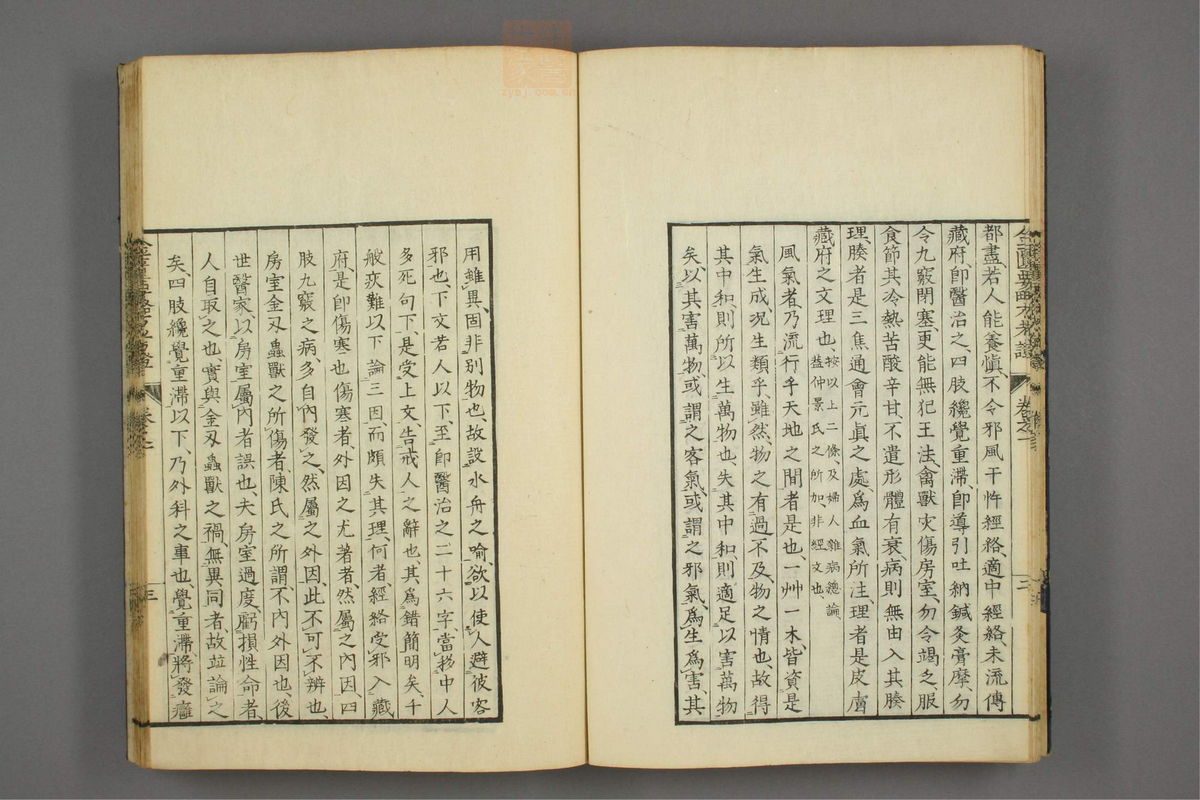 都盡若人能養慎、不令邪風干忤經絡、適中經絡未流傳
藏府、即醫治之、四肢纔覺重滯、即導引吐納鍼灸膏摩、勿
令九竅閉塞、更能無犯王法、禽獸災傷、房室勿令竭之、服
食節其冷熱苦酸辛甘、不遣形體有衰、病則無由入其腠
理、腠者是三焦通會元眞之處、爲血氣所注、理者是皮膚
藏府之文理也、
按以上二條及婦人雜病總論
葢仲景氏之所加、非經文也、
風氣者、乃流行乎天地之間者是也、一艸一木、皆資是
氣生成、况生類乎、雖然、物之有過不及、物之情也、故得
其中和、則所以生萬物也、失其中和、則適足以害萬物
矣、以其害萬物、或謂之客氣、或謂之邪氣、爲生爲害、其
用雖異、固非別物也、故設水舟之喻、欲以使人避彼客
邪也、下文若人以下、至即醫治之、二十六字、當移中人
多死句下、是受上文、告戒人之辭也、其爲錯簡明矣、千
般疢難以下、論三因、而頗失其理、何者、經絡受邪入藏
府、是即傷寒也、傷寒者、外因之尤著者、然屬之內因、四
肢九竅之病、多自內發之、然屬之外因、此不可不辨也、
房室金刃蟲獸之所傷者、陳氏之所謂不內外因也、後
世醫家、以房室屬內者誤也、夫房室過度、虧損性命者、
人自取之也、實與金刃蟲獸之禍、無異同者、故竝論之
矣、四肢纔覺重滯以下、乃外科之事也、覺重滯將發癰
卷之一
三
三
zysj.com.cn